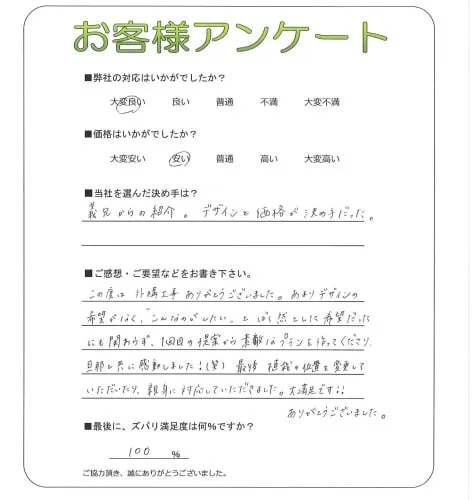 お客様アンケート
■弊社の対応はいかがでしたか？
大変良い 良い 普通 不満 大変不満
■価格はいかがでしたか？
大変安い 安い 普通 高い 大変高い
■当社を選んだ決め手は？
義兄からの紹介。デザインと価格が決め手だった。
■ご感想・ご要望などをお書き下さい。
この度は外構工事ありがとうございました。あまりデザインの
希望がなく、"こんなのがしたい"とばく然とした希望だった
にも関わらず、1回目の提案から素敵なプランを作ってくださり、
旦那と共に感動しました！(笑) 最後 植栽の位置を変更して
いただいたり、親身に対応していただきました。大満足です!!
ありがとうございました。
■最後に、ズバリ満足度は何%ですか？
100 %
ご協力頂き、誠にありがとうございました。